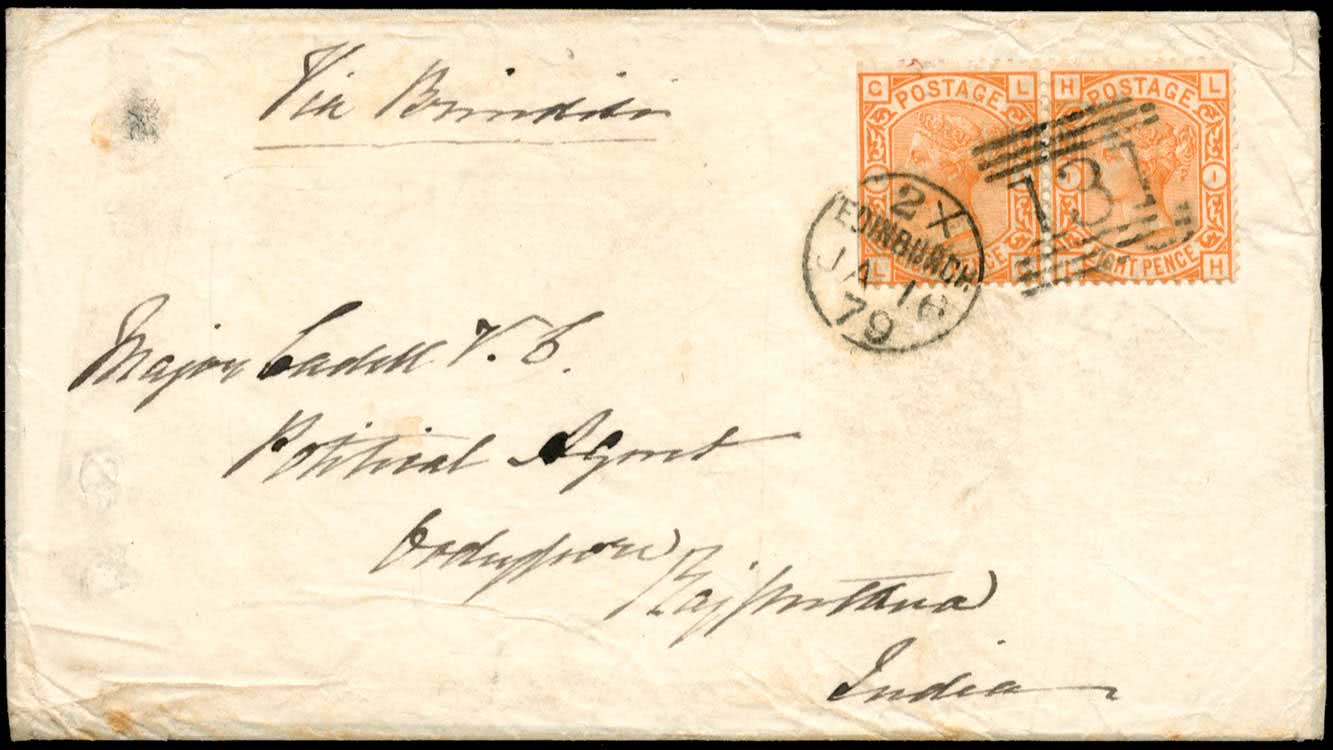 Via Brindisi
G POSTAGE L
H POSTAGE L
2X
EDINBURGH
JA 16
79
131
L
EIGHT PENCE
H
Major Cadell V.C.
Political Agent
Oodeypore Rajputana
India